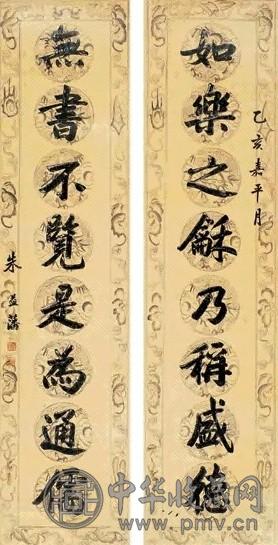 乙亥嘉平月
如樂之龢乃稱盛德
無書不覽是為通儒
朱益藩
中华收藏网
www.pmv.cn